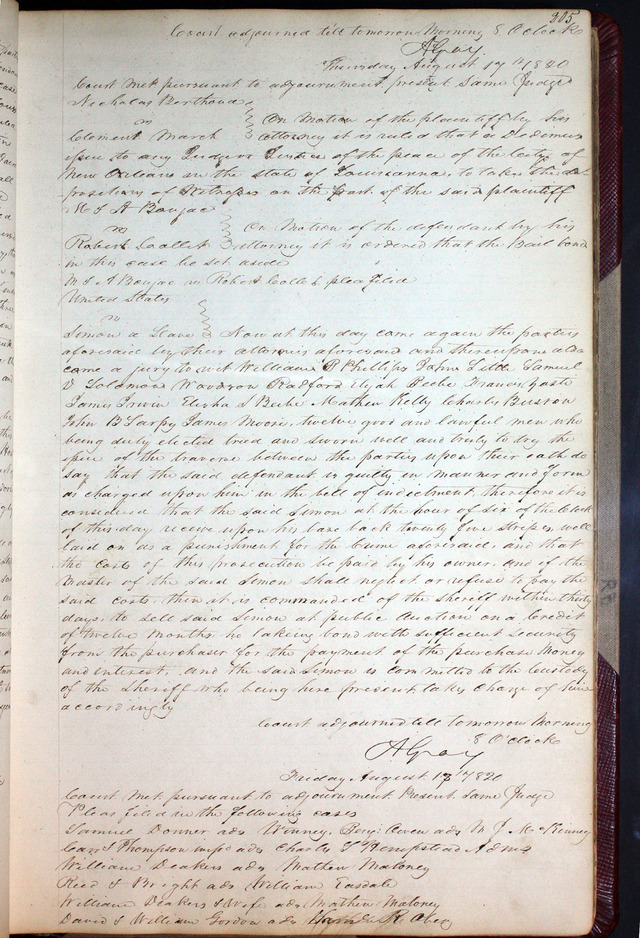 305
Court adjourned till tomorrow Morning 8 O'clock
A Gray
Thursday August 17th 1820
Court Met pursuant to adjournment present Same Judge
Nicholas Berthoud
vs
On Motion of the plaintiff by his
Clement March
attorney it is ruled that a Dedemus
issue to any Judge or Justice of the peace of the City of
New Orleans in the state of Louisianna, to take the de
positions of Witnesses on the part of the said plaintiff
M & A Boujac
vs
On Motion of the defendant by his
Robert Collet
attorney it is ordered that the Bail bond
in this case be set aside
M & A Boujac vs Robert Collet plea filed
United States
vs
Simon a Slave
Now at this day came again the parties
aforesaid by their attornies aforesaid and thereupon also
came a jury to wit William R Phillips John Lilde Samuel
D Solomon Woodson Radford Elijah Beebe Francis
James Irwin Elisha S Beebe Mathew Kelly Charles Burson
John B Sarpy James Moore, twelve good and lawful men who
being duly elected tried and sworn well and truly to try the
issue of the traverse between the parties upon their oath do
say that the said defendant is guilty in manner and form
as charged upon him in the bill of indectment, therefore it is
considered that the said Simon at the hour of six of the Clock
of this day receive upon his bare back twenty five stripes well
laid on as a punishment for the crime aforesaid, and that
the costs of this prosecution be paid by his owner, and if the
Master of the said Simon shall neglect or refuse to pay the
said costs, then it is commanded of the sheriff within thirty
days, to sell said Simon at public Auction on a Credit
of twelve Months he taking bond with sufficient security
from the purchaser for the payment of the purchase Money
and interest, and the said Simon is committed to the Custody
of the Sheriff who being here present takes charge of him
accordingly
Court adjourned till tomorrow Morning
8 O'clock
A Gray
Friday August 18th 1820
Court Met pursuant to adjournment Present Same Judge
Pleas filed in the following cases
Samuel Donner ads Winney, Benj: ads M J McKinney
Thompson ads Charles S Hempstead Adms
William Deakers ads Mathew Maloney
Reed & Bright ads William Tasdale
William Deakers & Wife ads Mathew Maloney
David & William Gordon ads